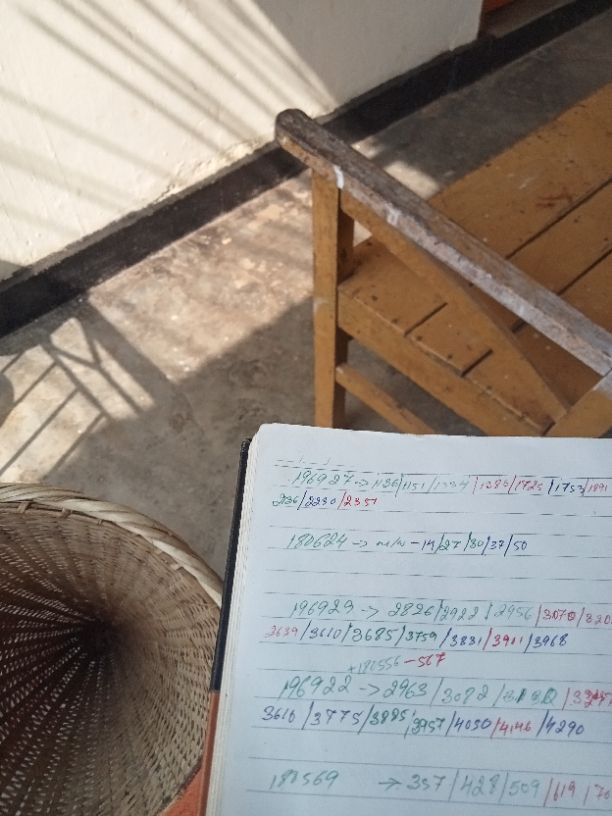 196927 → 1126/1151/1334/1383/1725/1753/1891
236/2230/2351
180624 → m/w - 14/27/30/37/50
196929 → 2826/2922/2956/3070/320
2639/3610/3685/3759/3831/3911/3968
+180556 - 567
196922 → 2963/3082/3180/324
3610/3775/3885/3957/4030/4146/4290
180569 → 357/428/509/619/70